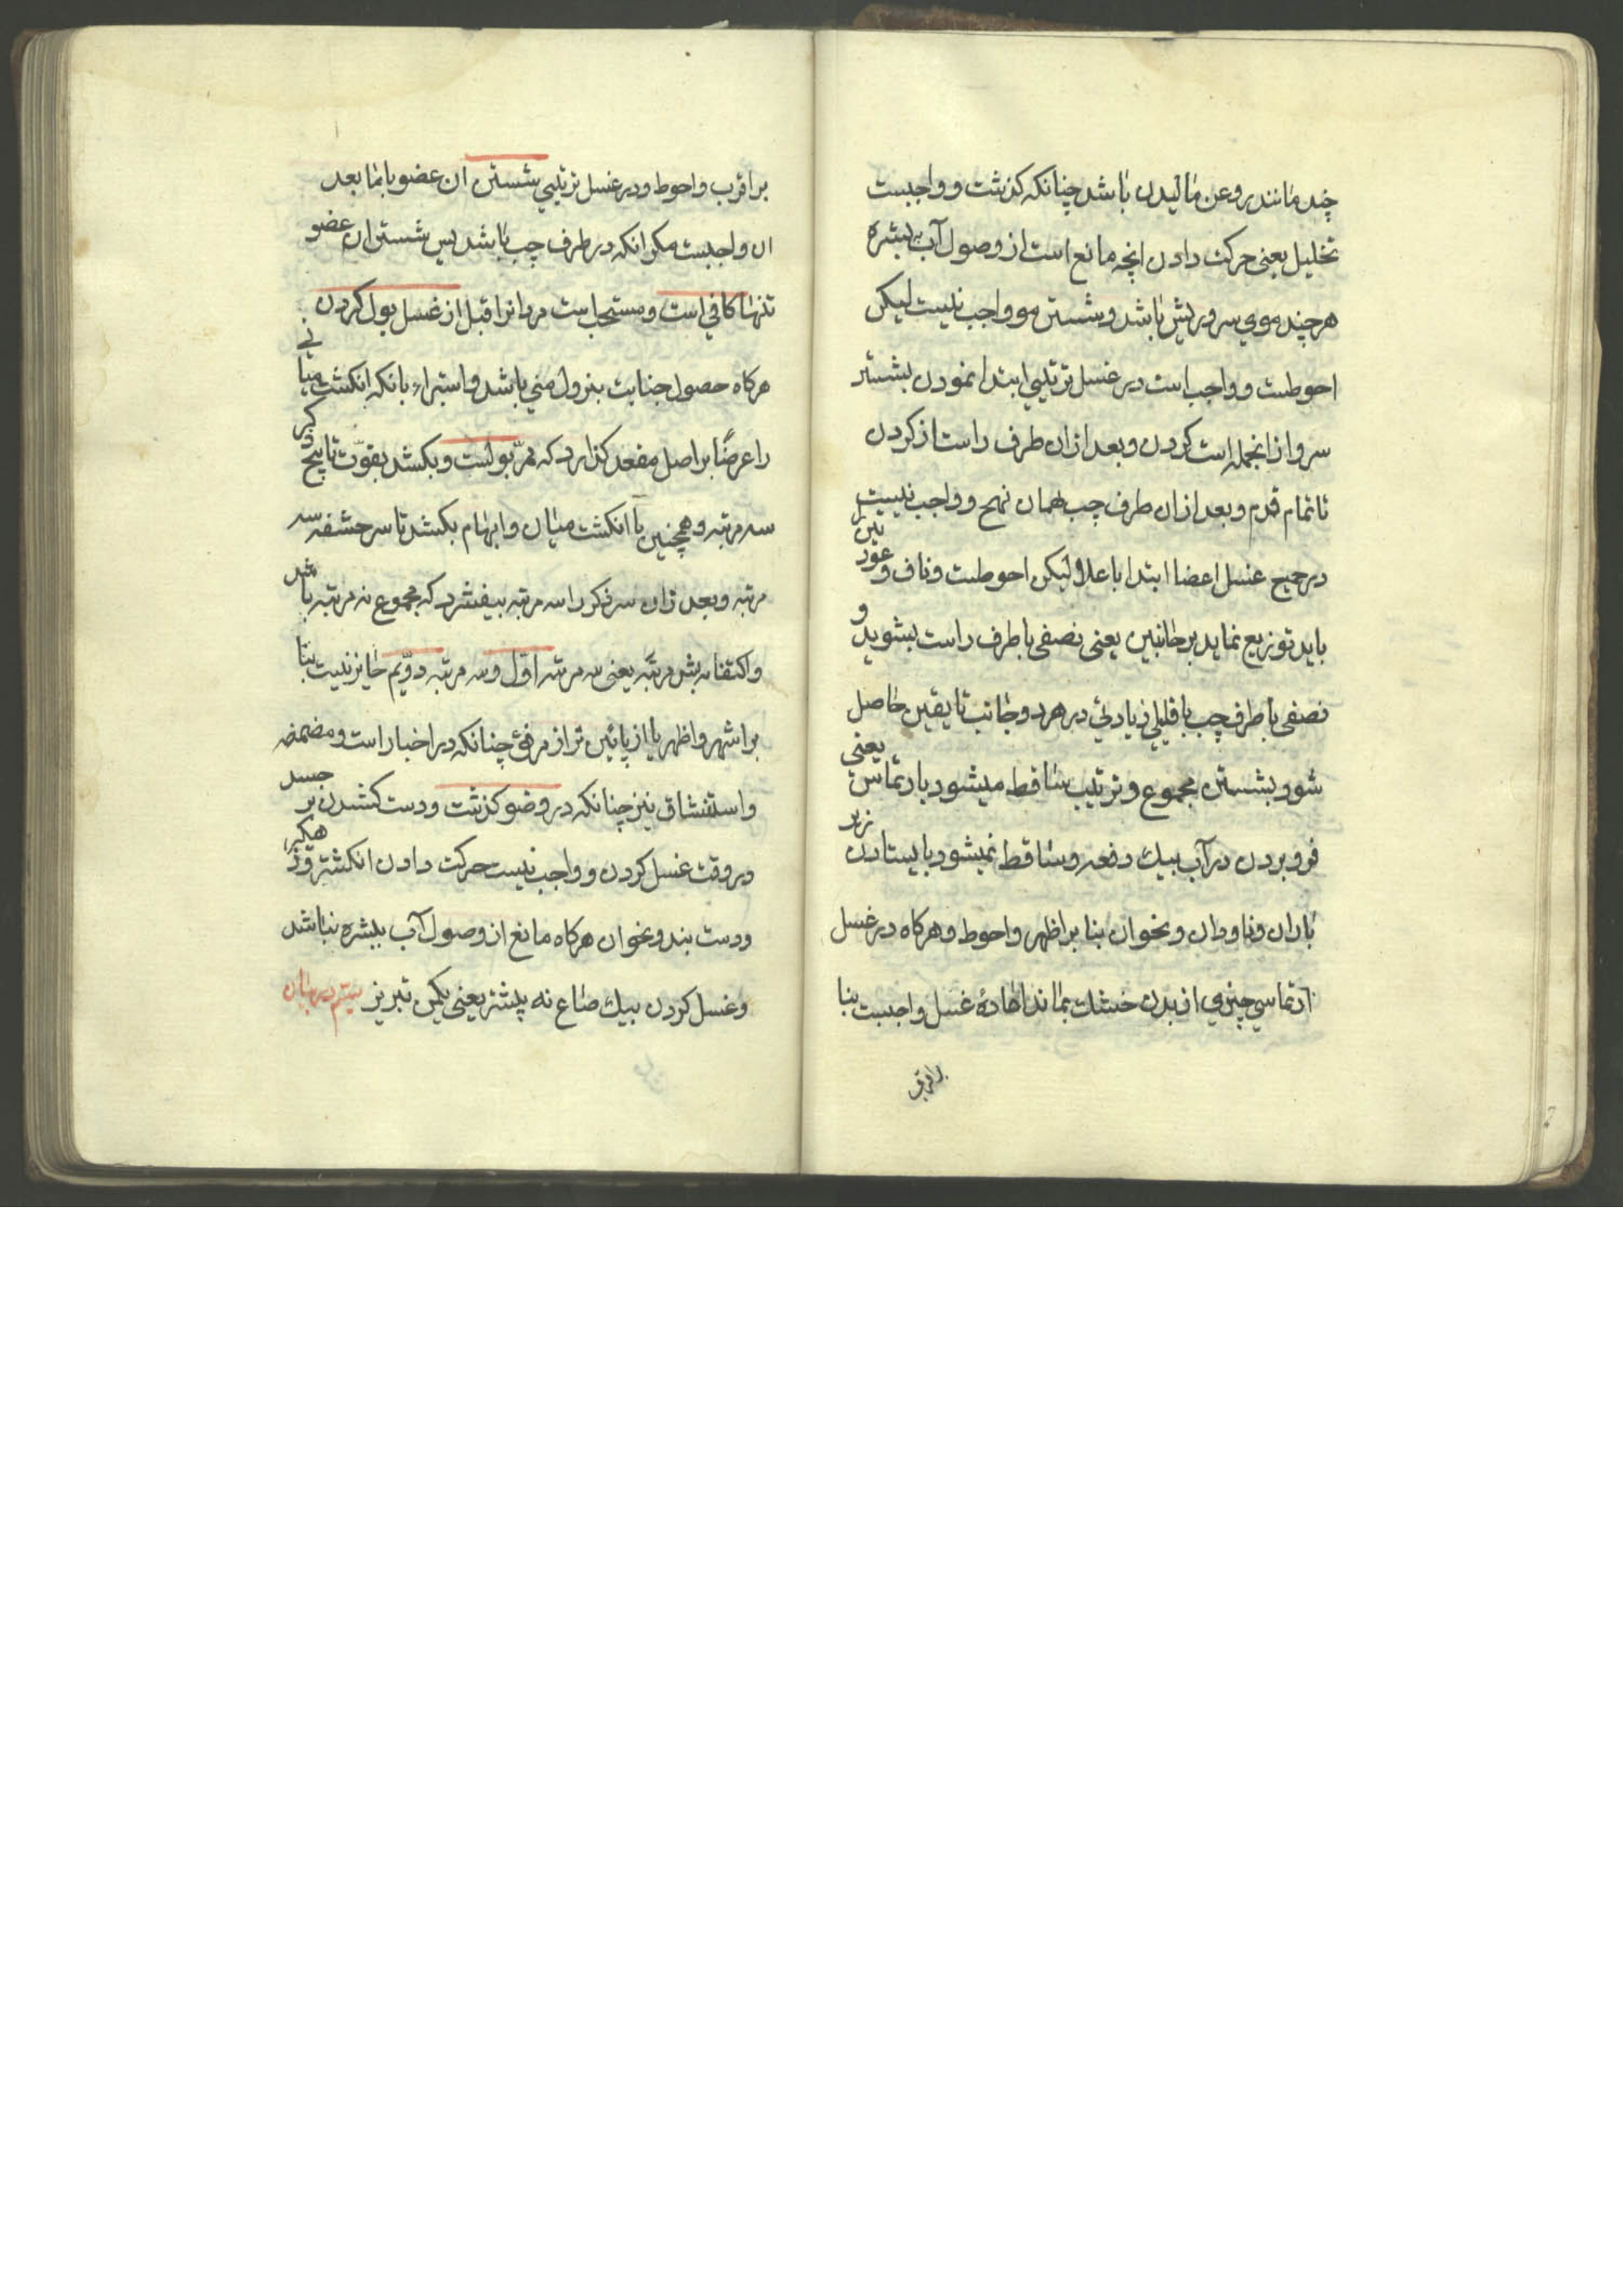 چند مانند روغن مالیدن باشد چنانکه کذشت و واجبست
تخلیل یعنی حرکت دادن انچه مانع است از وصول آب ببشره
هر چند موی سر و ریش باشد و شستن مو واجب نیست لیکن
احوطست و واجب است در غسل ترتیبی ابتدا نمودن بشستن
سر و از انجمله است کردن و بعد از ان طرف راست از کردن
تا تمام قدم و بعد از ان طرف چب بهمان نهج و واجب نیست
در جمیع غسل اعضا ابتدا باعلا و لیکن احوطست و ناف و عورتین
باید توزیع نماید بر جانبین یعنی نصفی با طرف راست بشوید و
نصفی با طرف چب با قلیلی زیادتی در هر دو جانب تا یقین حاصل
شود بشستن مجموع و ترتیب ساقط میشود بارتماس یعنی
فرو بردن در آب بیک دفعه و ساقط نمیشود بایستادن زیر
باران و ناودان و نحو ان بنا بر اظهر و احوط و هرکاه در غسل
ارتماسی چیزی از بدن خشك بماند اعادهٔ غسل واجبست بنا
بر اقرب
بر اقرب و احوط و در غسل ترتیبی شستن ان عضو با ما بعد
ان واجبست مکر انکه در طرف چب باشد پس شستن ان عضو
تنها کافی است و مستحب است مردانرا قبل از غسل بول کردن
هرکاه حصول جنابت بنزول منی باشد و استبراء بانکه انکشت میانی
را عرضًا بر اصل مقعد کذارد که ممرّ بولست و بکشد بقوّت تا بیخ ذکر
سه مرتبه و همچنین با انکشت میان و ابهام بکشد تا سر حشفه سه
مرتبه و بعد از ان سر ذکر را سه مرتبه بیفشرد که مجموع نه مرتبه باشد
و اکتفا بشش مرتبه یعنی سه مرتبه اوّل و سه مرتبه دوّیم جایز نیست بنا
بر اشهر و اظهر یا از پائین تر از مرفق چنانکه در اخبار است و مضمضه
و استنشاق نیز چنانکه در وضو کذشت و دست کشیدن بر جسد
در وقت غسل کردن و واجب نیست حرکت دادن انکشتر و
و دست بند و نحو ان هرکاه مانع از وصول آب ببشره نباشد
و غسل کردن بیك صاع نه بیشتر یعنی یکمن تبریز